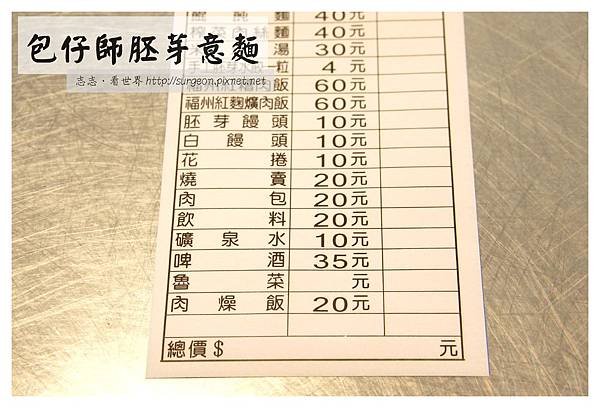 包仔師胚芽意麵
志志‧看世界 http://surgeon.pixnet.net
餛飩麵 40元
榨菜肉絲麵 40元
湯 30元
手工胚芽水餃一粒 4元
福州紅糟肉飯 60元
福州紅麴爌肉飯 60元
胚芽饅頭 10元
白饅頭 10元
花捲 10元
燒賣 20元
肉包 20元
飲料 20元
礦泉水 10元
啤酒 35元
魯菜 元
肉燥飯 20元
總價$ 元